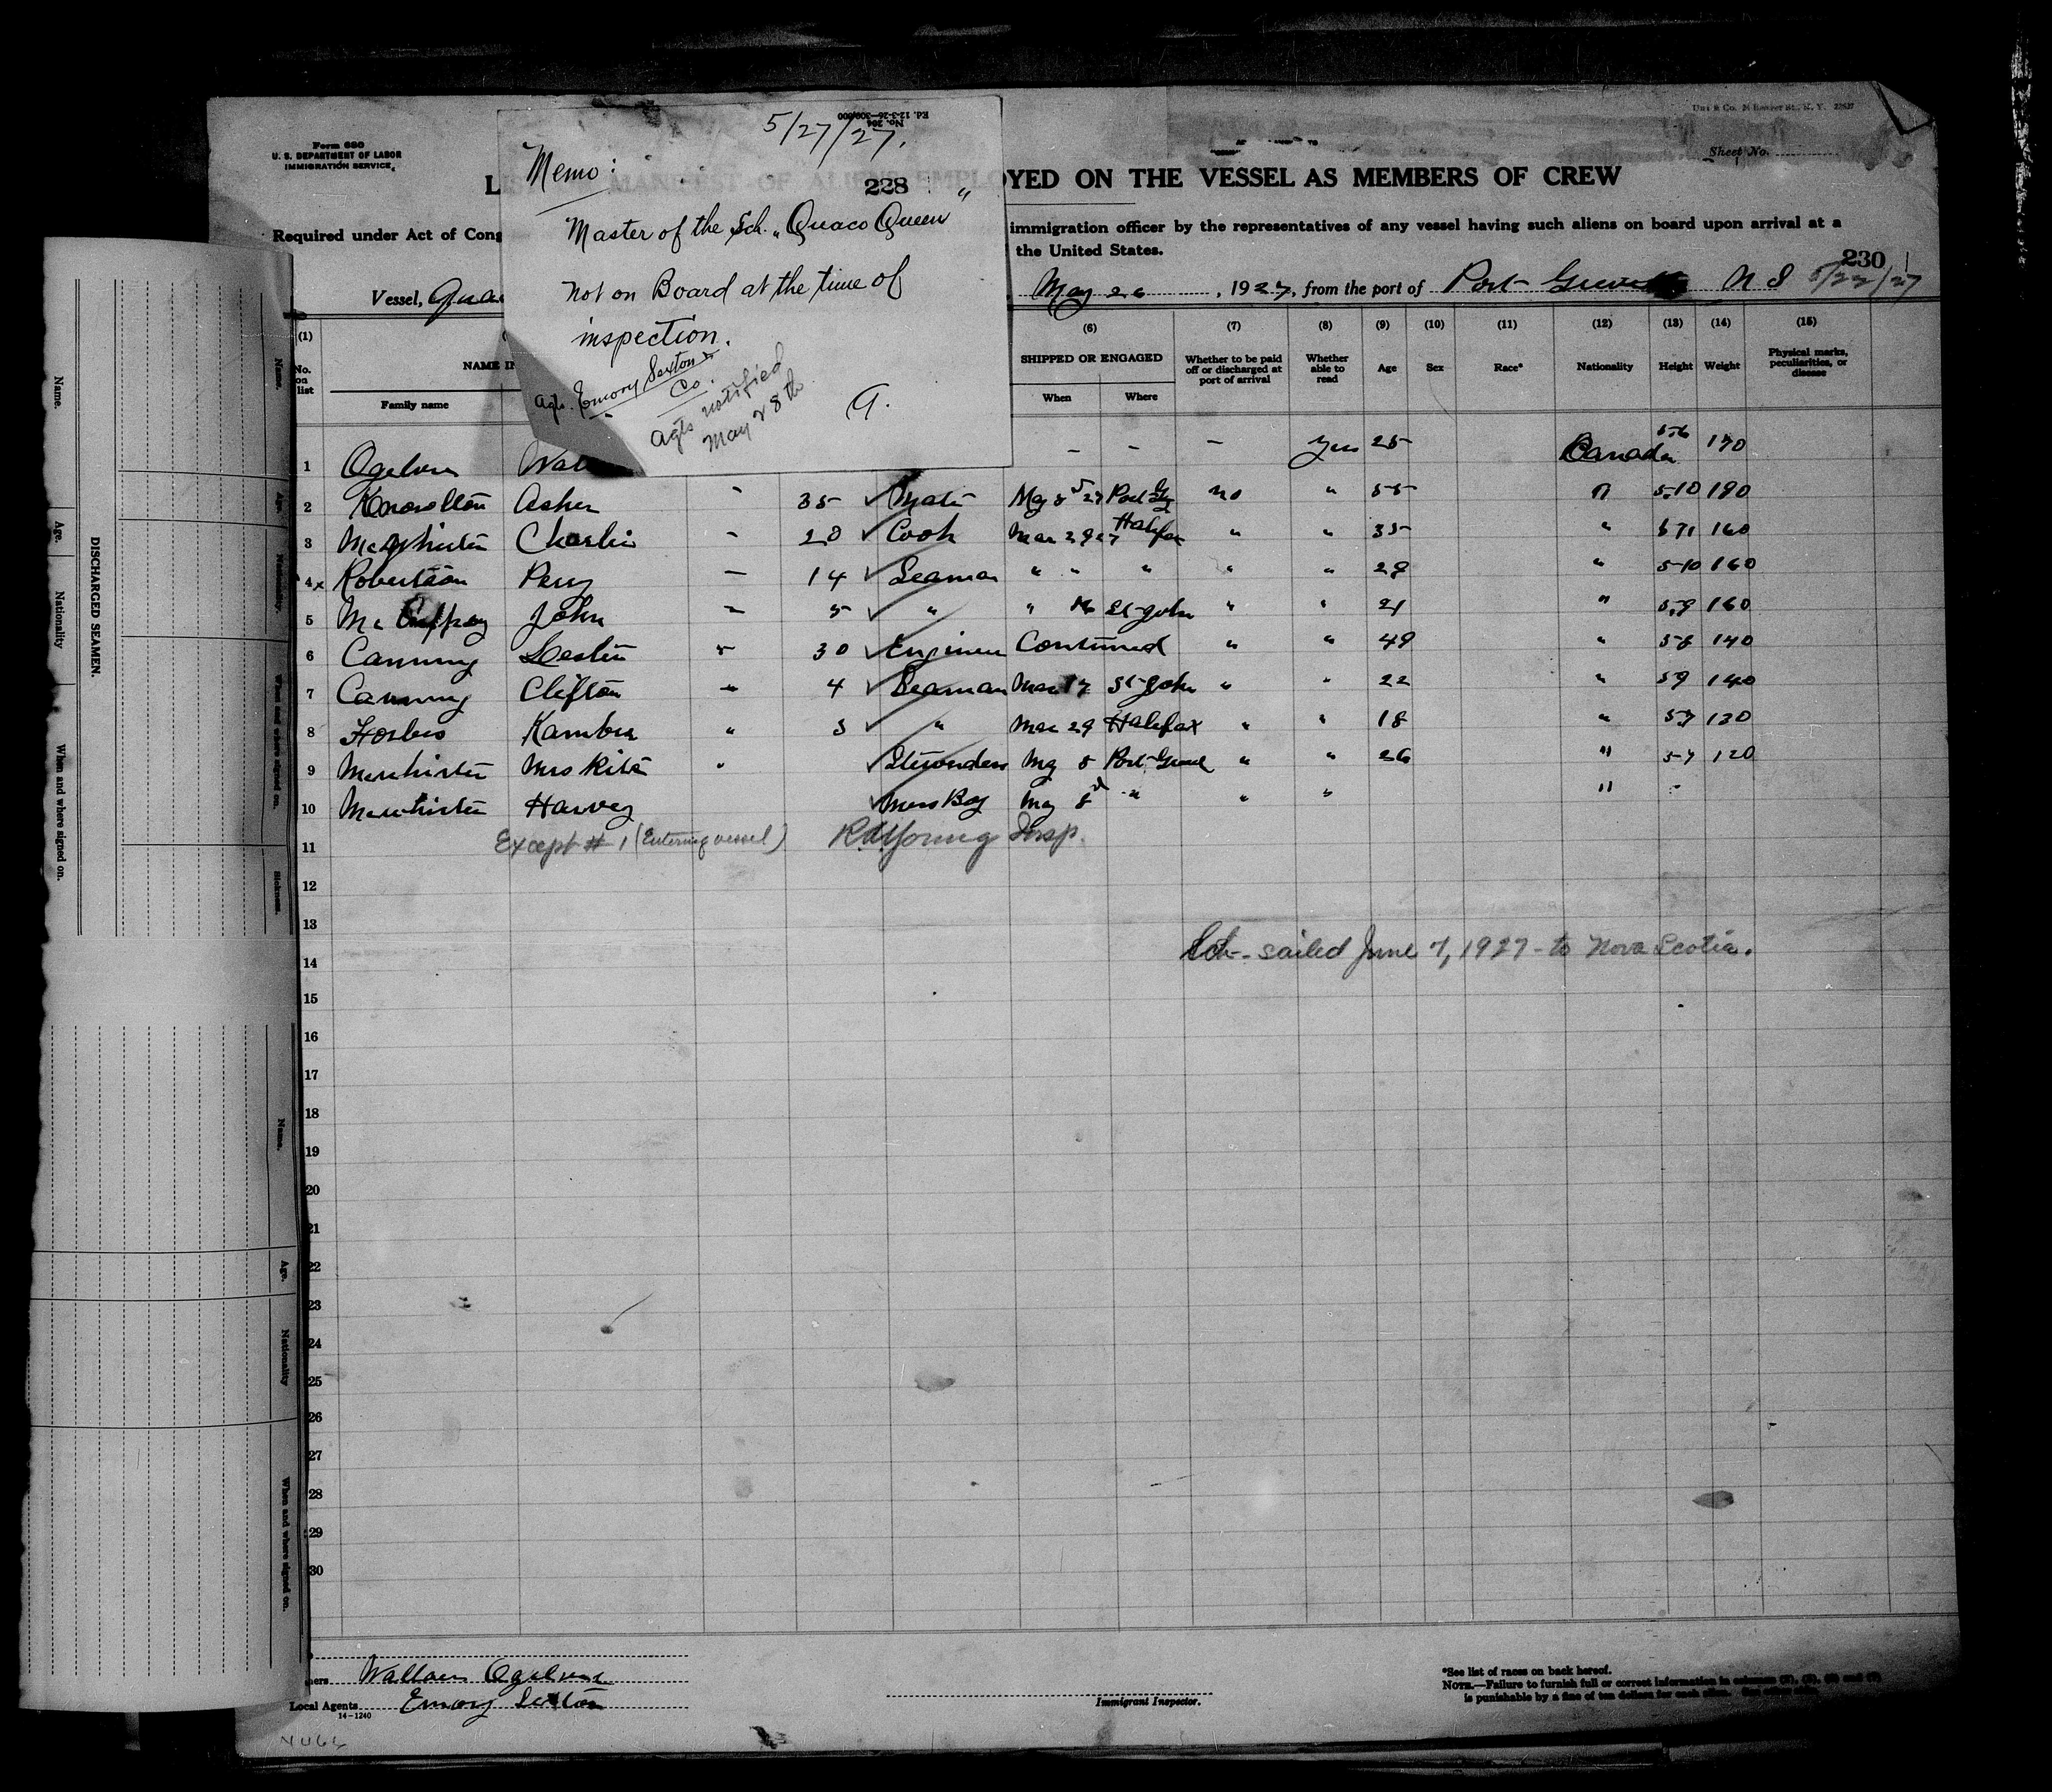 Form 680
U. S. DEPARTMENT OF LABOR
IMMIGRATION SERVICE
Ed. 12-3-26—300,000
No. 204
5/27/27.
Memo:
228
Master of the Sch. „Quaco Queen"
not on Board at the time of
inspection.
Agts. Emory Sexton &
Co.
Agts notified
May 28th
G.
Sheet No.
MANIFEST OF ALIENS EMPLOYED ON THE VESSEL AS MEMBERS OF CREW
Required under Act of Cong
immigration officer by the representatives of any vessel having such aliens on board upon arrival at a
the United States.
230
Vessel, Qua
May 26, 1927, from the port of Port N S 5/22/27
(1) (6) (7) (8) (9) (10) (11) (12) (13) (14) (15)
No. on list
NAME IN
Family name
SHIPPED OR ENGAGED
When
Where
Whether to be paid off or discharged at port of arrival
Whether able to read
Age
Sex
Race*
Nationality
Height
Weight
Physical marks, peculiarities, or disease
1 Ogilvie Wal - - - Yes 25 Canada 5-6 170
2 Knowlton Asher - 35 ✓ Mate May 5 27 no " 55 " 5-10 190
3 McWhirter Charlie - 20 ✓ Cook Mar 29 27 Halifax " " 35 " 160
4x Robertson Perry - 14 ✓ Seaman " " " " " 28 " 5-10 160
5 Mc John - 5 ✓ " " St-John " " 21 " 5.9 160
6 Canning Leslie 30 ✓ Engineer Continued " " 49 " 5-8 140
7 Canning Clifton 4 ✓ Seaman Mar 17 St-John " " 22 " 5 9 140
8 Forbes " 3 ✓ " Mar 29 Halifax " " 18 " 5-7 130
9 Mewhirter Mrs Rita " ✓ Stewardess May 5 Port " " 26 " 5-7 120
10 Mewhirter Harvey ✓ Mess Boy May " " " "
11 Except # 1 (Entering vessel) Young Insp.
12
13
14 Sch- sailed June 7, 1927 - to Nova Scotia.
15
16
17
18
19
20
21
22
23
24
25
26
27
28
29
30
Wallace Ogilvie
Local Agents Emory Sexton
14-1240
Immigrant Inspector.
*See list of races on back hereof.
NOTE.—Failure to furnish full or correct information in columns
is punishable by a fine of ten dollars for each alien.
DISCHARGED SEAMEN.
Name.
Age.
Nationality
When and where signed on.
Name.
Age.
Nationality
When and where signed on.
Sickness.
Name.
Age.
Nationality
When and where signed on.